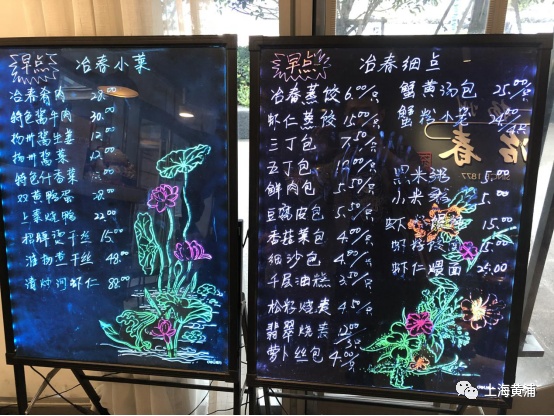 早点
冶春小菜
冶春肴肉 28.00
特色酱牛肉 30.00
扬州酱生姜 12.00
扬州酱菜
特色什香菜
双黄鸭蛋
上素烧鸭 22.00
招牌烫干丝 15.00
淮扬煮干丝 48.00
清炒河虾仁 88.00
早点
冶春细点
冶春蒸饺 6.00/只
虾仁蒸饺 15.00/只
三丁包 7.50/只
五丁包 10.00/只
鲜肉包 5.50/只
豆腐皮包 5.50/只
香菇菜包 4.00/只
细沙包 4.00/只
千层油糕 3.50/只
松籽烧卖 4.50/只
翡翠烧卖 12.00
萝卜丝包 4.00/只
蟹黄汤包 25.00/只
蟹粉小笼
冶春
1877
黑米粥 5.00
小米粥 5.00
虾籽
虾仁煨面 25.00
上海黄浦